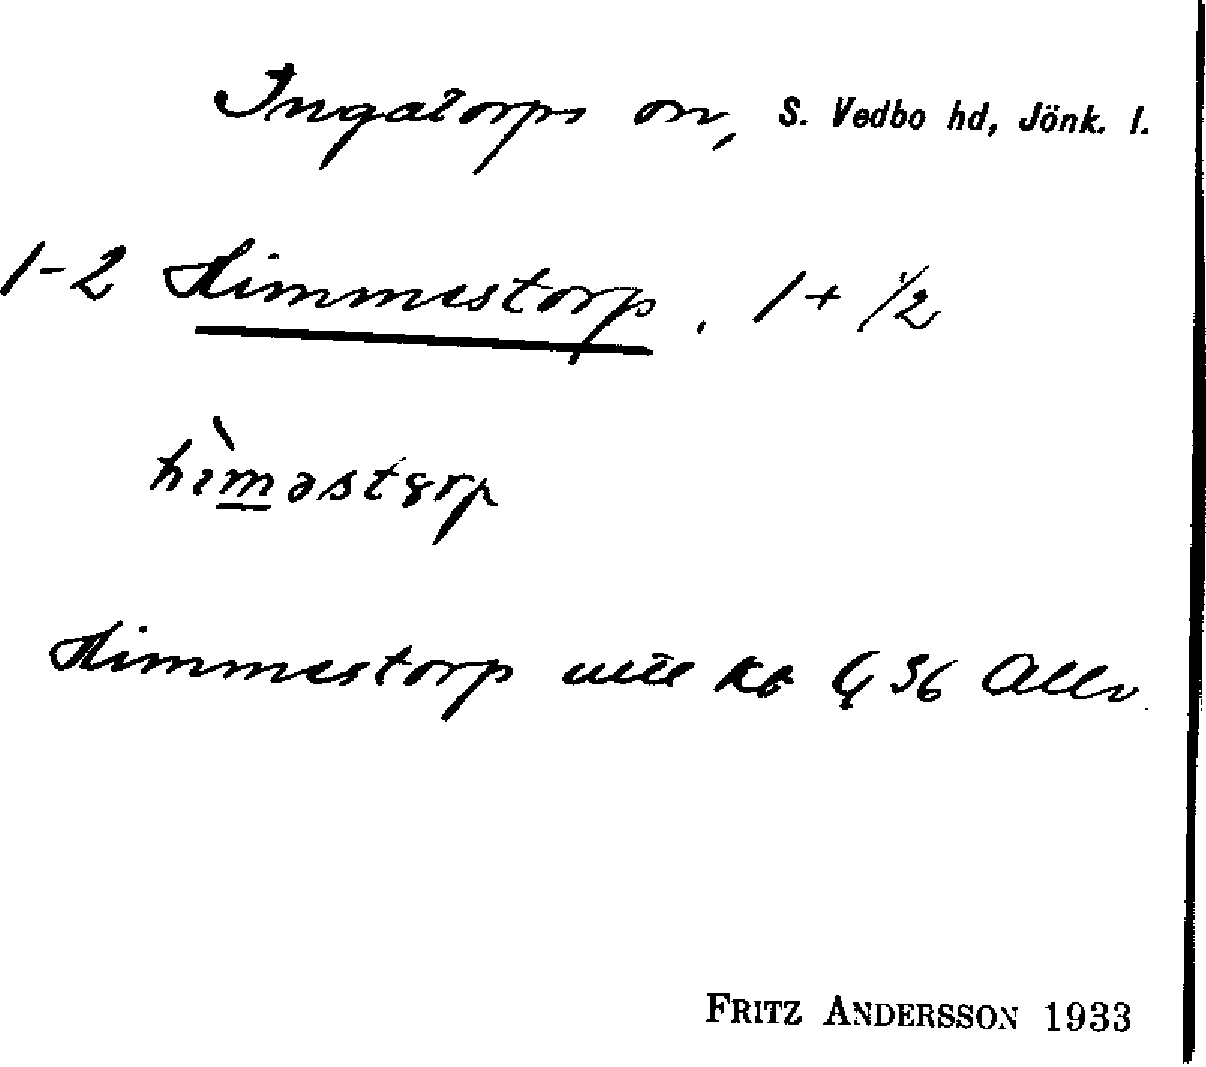 Ingatorps sn, S. Vedbo hd, Jönk. l.
1-2 Himmestorp. 1 + 1/2
hìməstɤrp
Himmestorp kb 36
FRITZ ANDERSSON 1933